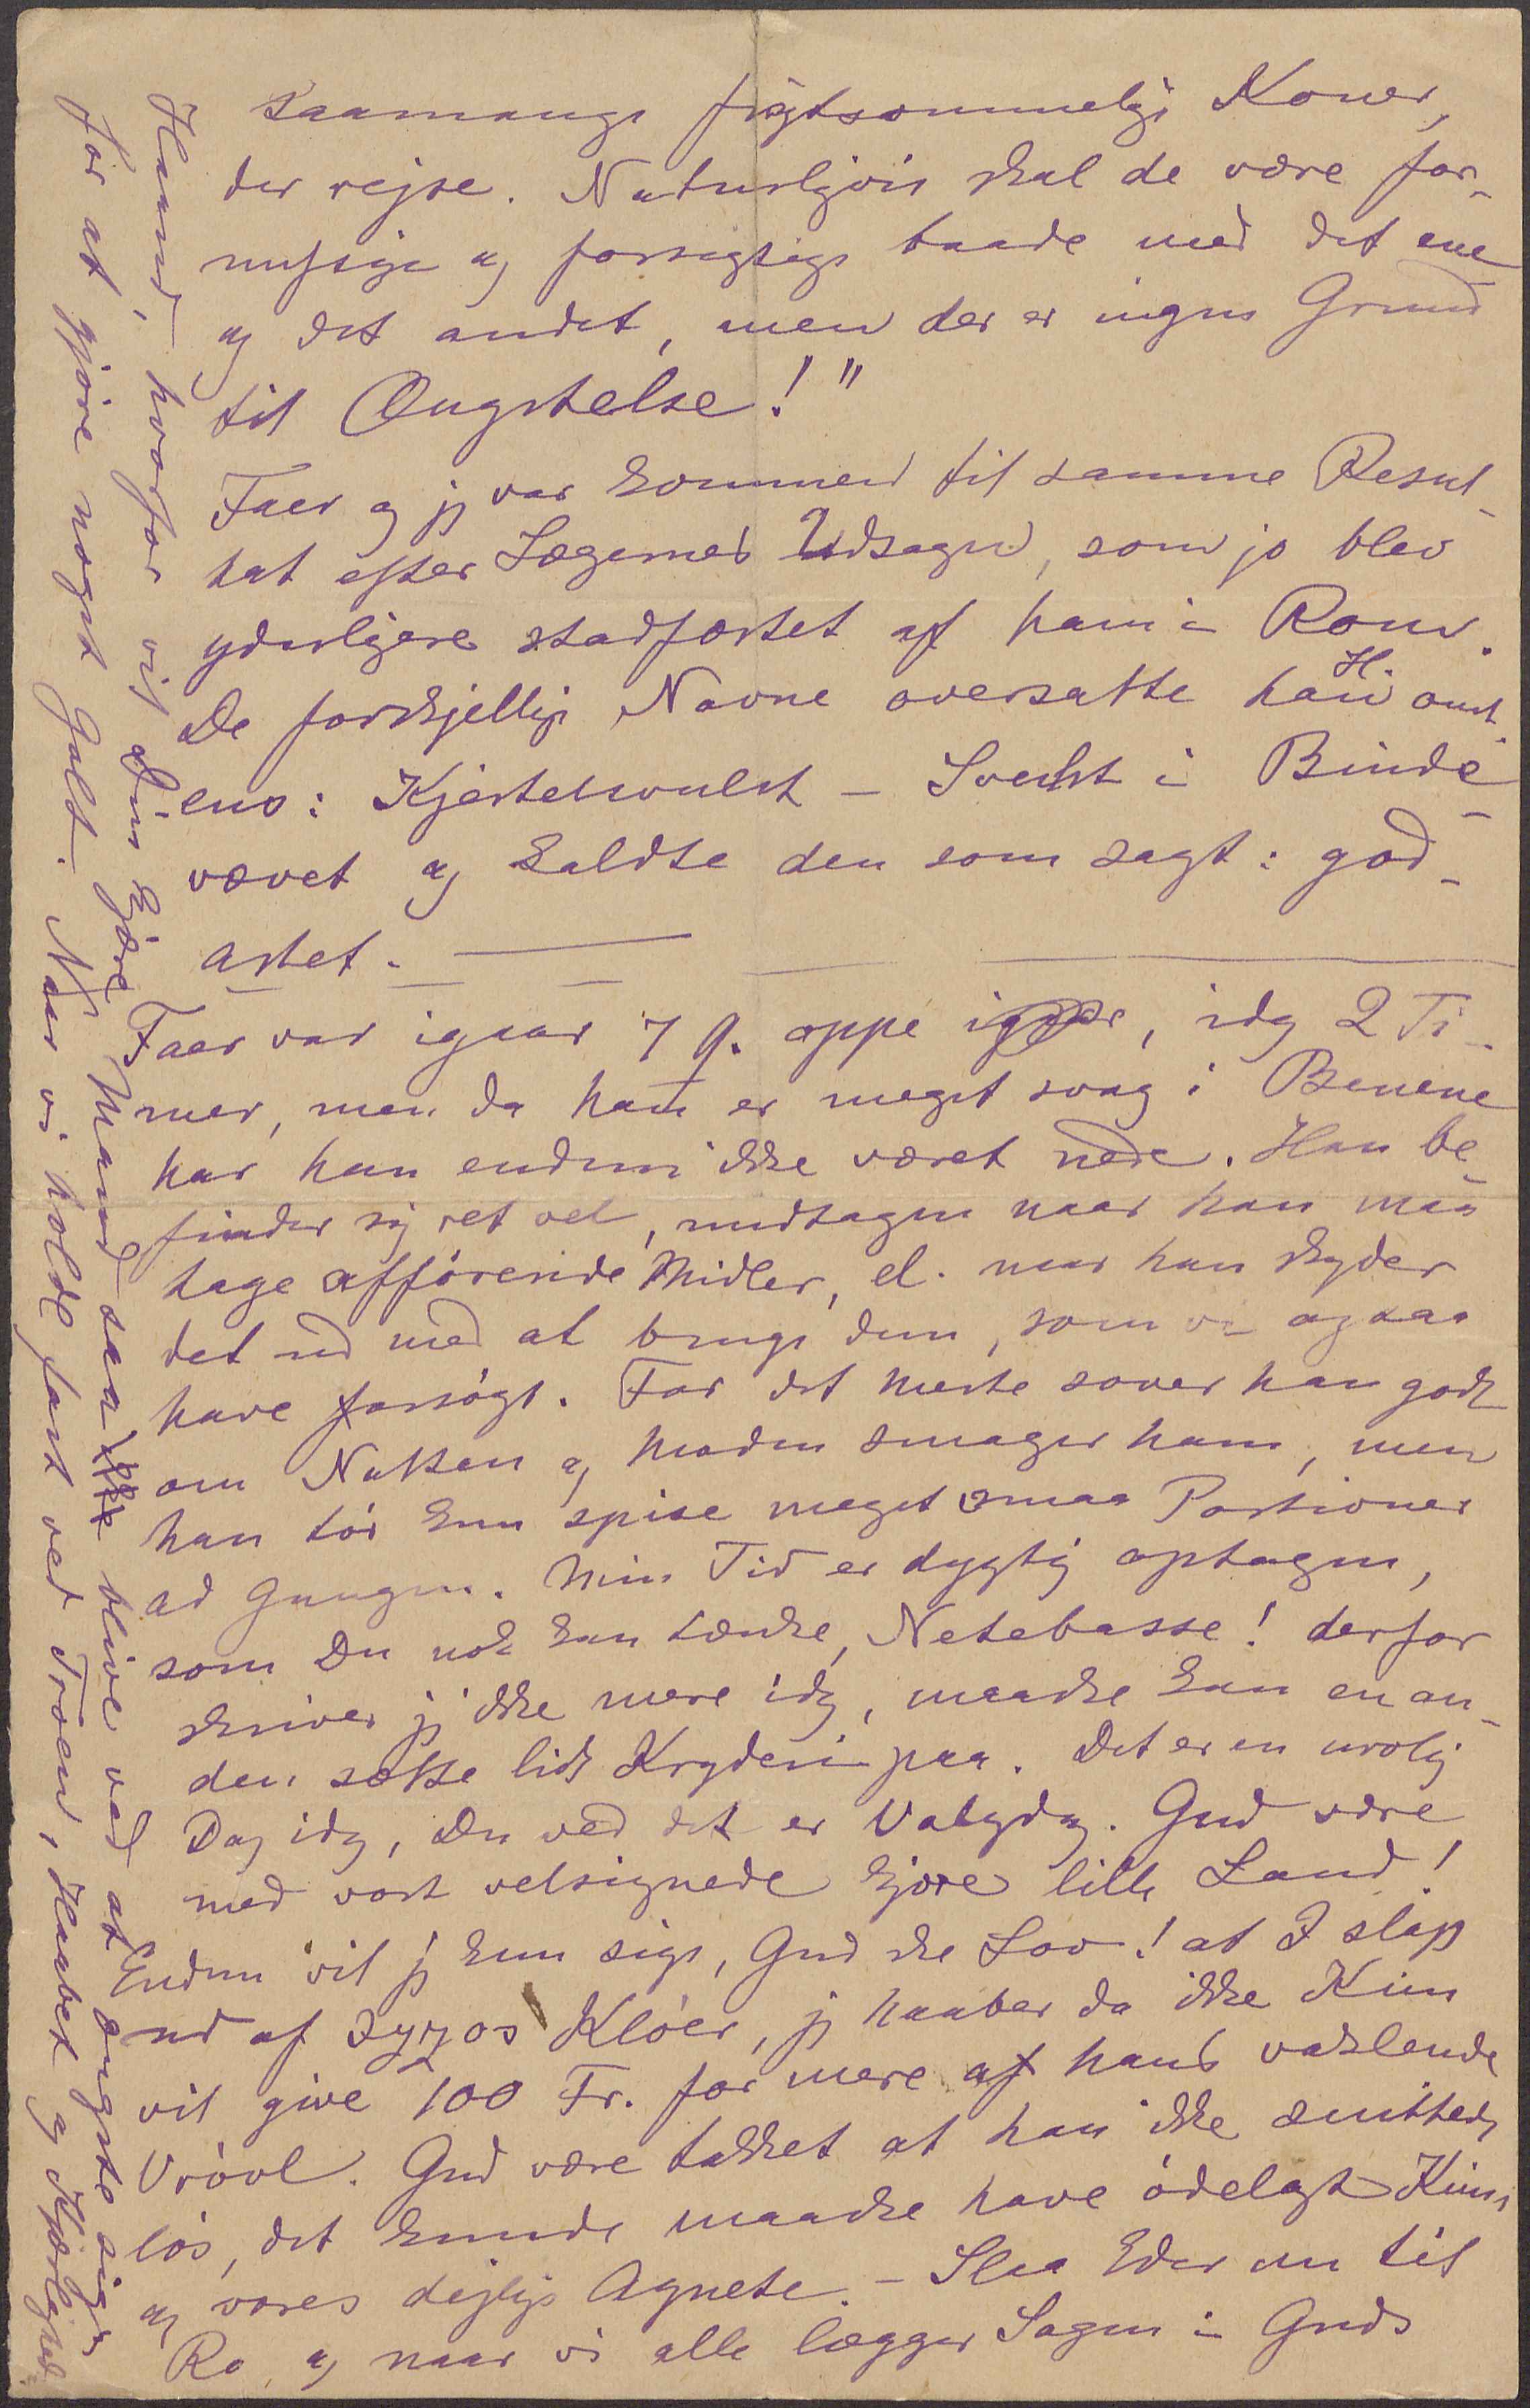 saamange frugtsommelige Koner,
der rejse. Naturligvis skal de være for-
nuftige og forsigtige baade med det ene
og det andet, men der er ingen Grund
til Ængstelse!"
Faer og jeg var kommen til samme Resul-
tat efter Lægernes Udsagn, som jo blev
yderligere stadfæstet af ham i Rom.
De forskjellige Navne oversatte han
ens: Kjertelsvulst - Svulst i Binde-
vævet og kaldte den som sagt: god-
artet. -
Faer var igaar 7 Q. oppe, idag 2 Ti-
mer, men da han er meget svag i Benene
har han endnu ikke været nede. Han be-
finder sig ret vel, undtagen naar han maa
tage afførende Midler, el. naar han skyder
det ud med at bruge dem, som vi ogsaa
have forsøgt. For det meste sover han godt
om Natten og Maden smager ham, men
han tør kun spise meget smaa Portioner
ad Gangen. Min Tid er dygtig optagen,
som Du nok kan tænke, Netebasse! derfor
skriver jeg ikke mere idag, maaske kan en an-
den sætte lidt Kryderi paa. Det er en urolig
Dag idag, Du ved det er Valgdag. Gud være
med vort velsignede kjære lille Land!
Endnu vil jeg kun sige, Gud ske Lov! at I slap
ud af Zyzos Kløer, jeg haaber da ikke Kim
vil give 100 Fr. for mere af hans vaklende
Vrøvl. Gud være takket at han ikke snittede
løs, det kunde maaske have ødelagt Kims
og vores dejlige Agnete. - Slaa Eder nu til
Ro, og naar vi alle lægger Sagen i Guds
Haand, hvorfor vil Din kjære Mand saa blive ved at ængste sig
for at gjøre noget Galt. Naar vi holde fast ved Troen, Haabet og Kjærlighed